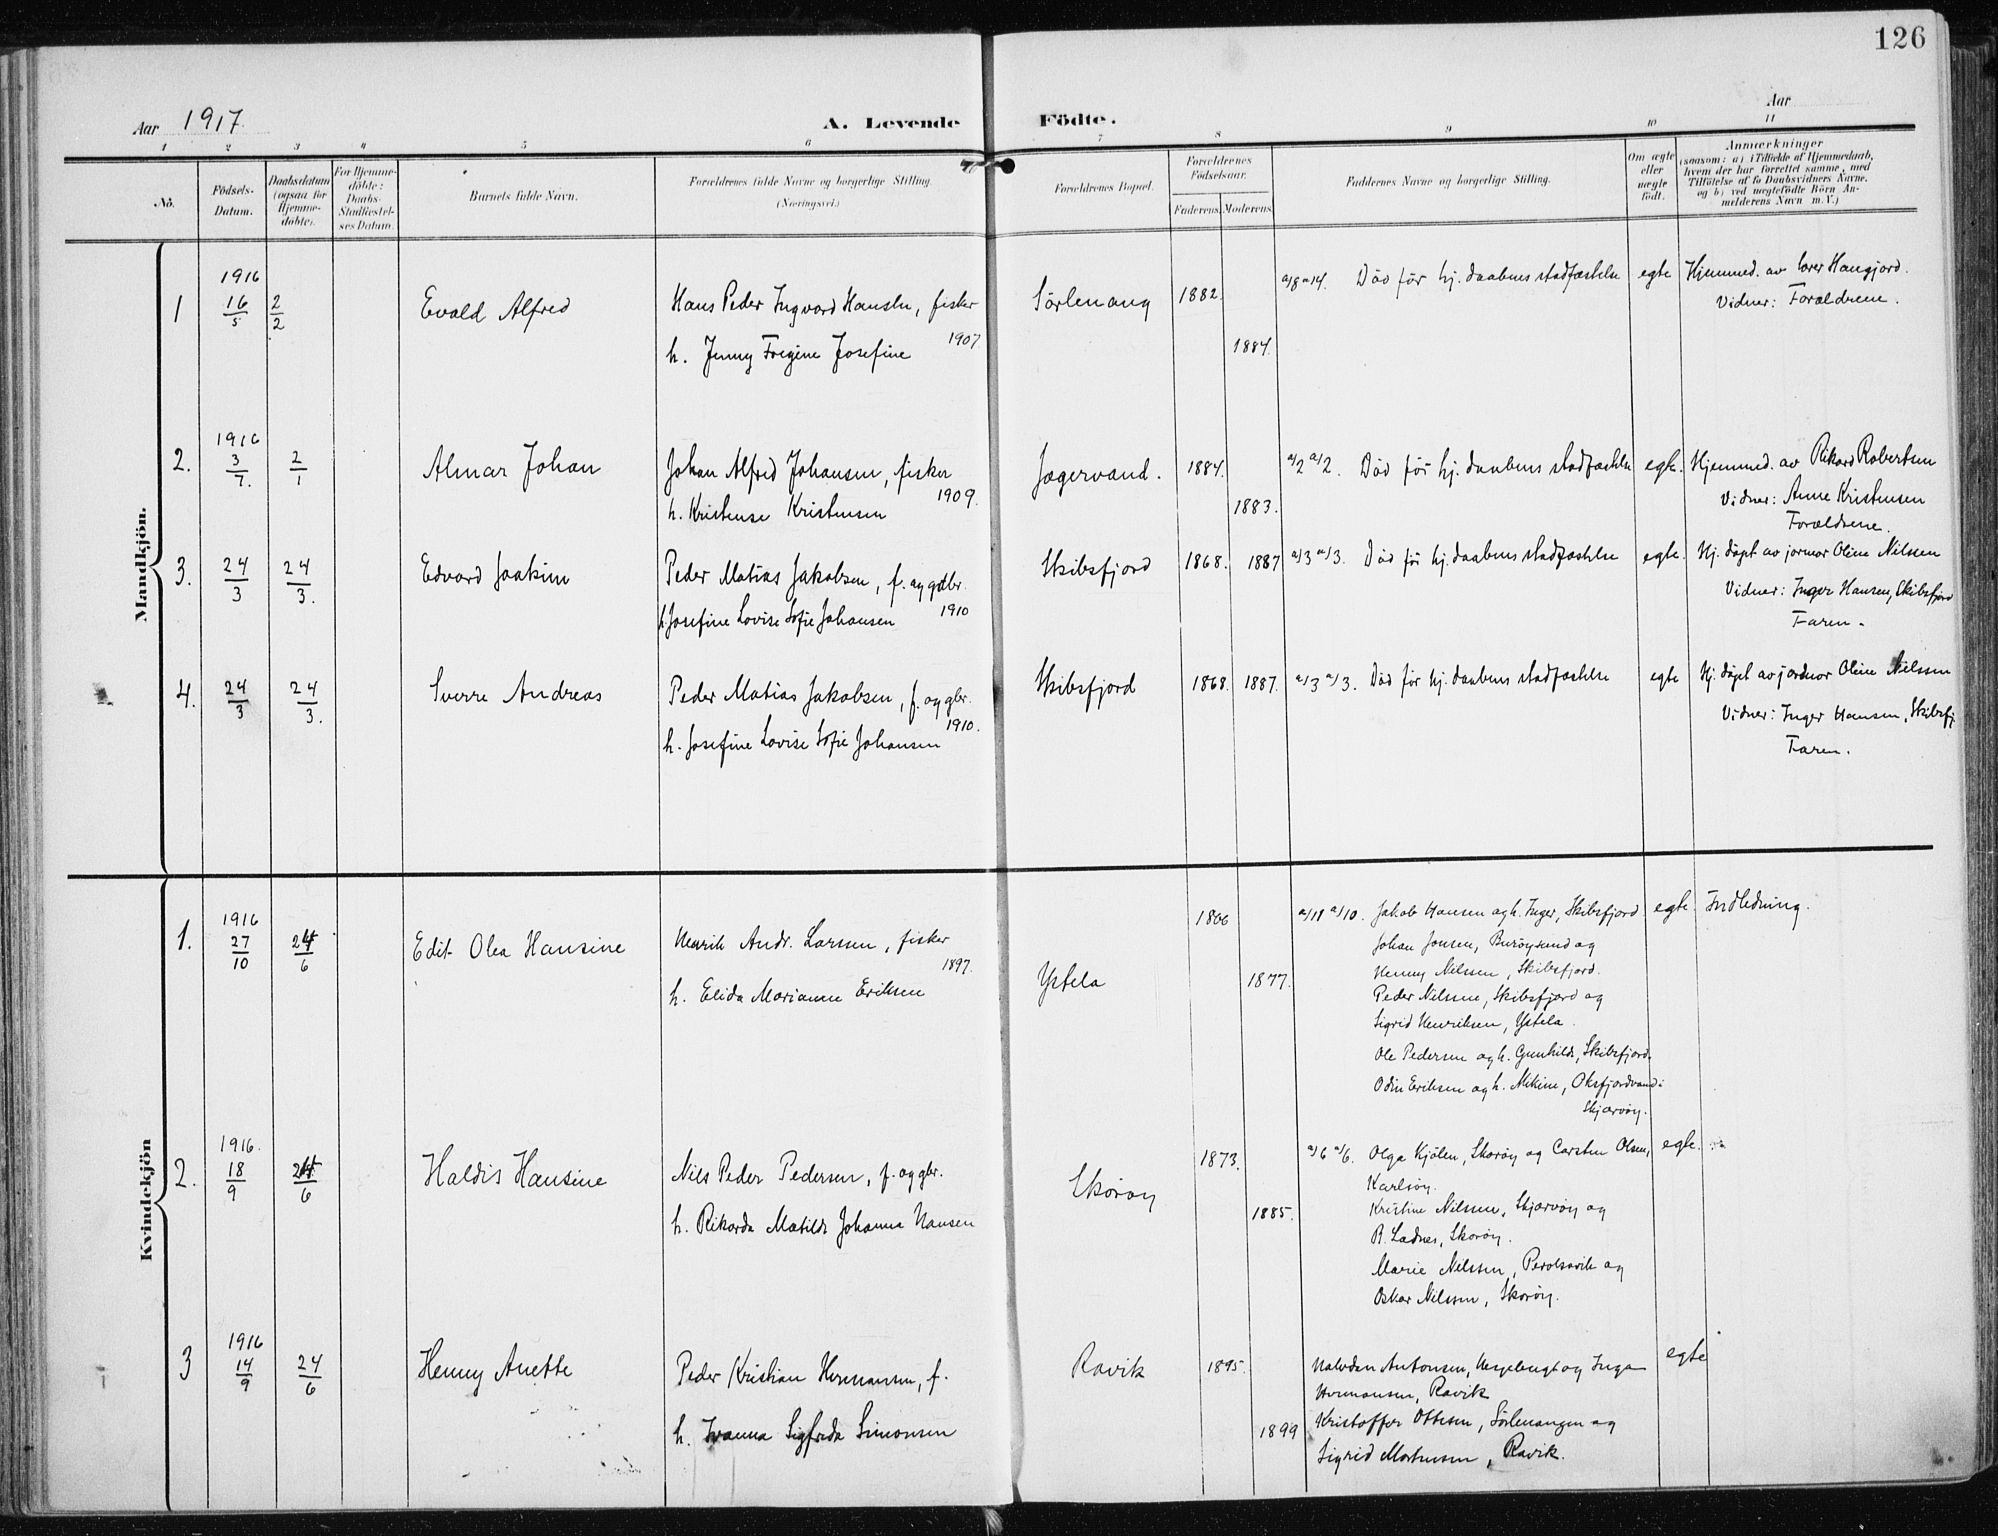 126
Aar 1917.
A. Levende Födte.
Aar
1 2 3 4 5 6 7 8 9 10 11
No.
Födsels-
Datum.
Daabsdatum
(ogsaa for
Hjemme-
döbte).
For Hjemme-
döbte:
Daabs-
Stadfæstel-
ses Datum.
Barnets fulde Navn.
Forældrenes fulde Navne og borgerlige Stilling.
(Næringsvei.)
Forældrenes Bopæl.
Forældrenes
Födselsaar.
Faderens. Moderens.
Faddernes Navne og borgerlige Stilling.
Om ægte
eller
uægte
födt.
Anmærkninger
(saasom: a) i Tilfælde af Hjemmedaab,
hvem der har forrettet samme, med
Tilföielse af to Daabsvidners Navne.
og b) ved uægtefödte Börn An-
melderens Navn m. V.)
Mandkjön.
1
1916
16/5
2/2
Evald Alfred
Hans Peder Ingvard Hansen, fisker
1907
h. Jenny Fregine Josefine
Sörlenang
1882.
1884.
a/8 a/14. Död för hj. daabens stadfæstelse
egte
Hjemmed. av lærer Haugjord.
Vidner: Forældrene.
2.
1916
3/7.
2/1
Almar Johan
Johan Alfred Johansen, fisker
1909.
h. Kristense Kristensen
Jægervand.
1884.
1883.
a/2 a/2. Död för hj. daabens stadfæstelse
egte.
Hjemmed. av Rikard Robertsen
Vidner: Anne Kristensen
Forældrene.
3.
24/3
24/3.
Edvard Joakim
Peder Matias Jakobsen, f. og gdbr.
1910
h. Josefine Lovise Sofie Johansen
Skibsfjord
1868.
1887
a/3 a/3. Död för hj. daabens stadfæstelse
egte.
Hj. döpt av jormor Oline Nilsen
Vidner: Inger Hansen, Skibsfjord
Faren.
4.
24/3
24/3.
Sverre Andreas
Peder Matias Jakobsen, f. og gbr.
1910.
h. Josefine Lovise Sofie Johansen
Skibsfjord
1868.
1887.
a/3 a/3. Död för hj. daabens stadfæstelse
egte
Hj. döpt av jordmor Oline Nilssen
Vidner: Inger Hansen, Skibsfj
Faren.
Kvindekjön
1.
1916
27/10
24/6
Edit Olea Hansine
Henrik Andr. Larsen, fisker
1897.
h. Elida Marianne Eriksen
Ystela
1866
1877.
a/11 a/10. Jakob Hansen og h. Inger, Skibsfjord
Johan Jensen, Buröysund og
Henny Nilssen, Skibsfjord.
Peder Nilssen, Skibsfjord og
Sigrid Henriksen, Ystela.
Ole Pedersen og h. Gunhild, Skibsfjord.
Odin Eriksen og h. Mikine, Oksfjordvand i
Skjærvöy.
egte
Indledning.
2.
1916.
18/9
24/6
Haldis Hansine
Nils Peder Pedersen, f. og gbr.
h. Rikarda Matilde Johanna Hansen
Skoröy
1873.
1885.
a/6 a/6. Olga Kjölen, Skoröy og Carsten Olsen,
Karlsöy.
Kristine Nilssen, Skjærvöy og
R. Ladnes, Skoröy.
Marie Nilssen, Perolsavik og
Oskar Nilssen, Skoröy.
egte.
3
1916
14/9
24/6
Henny Anette
Peder Kristian Hermansen, f.
h. Ivanna Sigfrida Simonsen
Ravik
1895.
1899
Halvdan Antonsen, Hessfengt og Inga
Hermansen, Ravik
Kristoffer Ottesen, Sörlenangen og
Sigrid Mortensen, Ravik.
egte